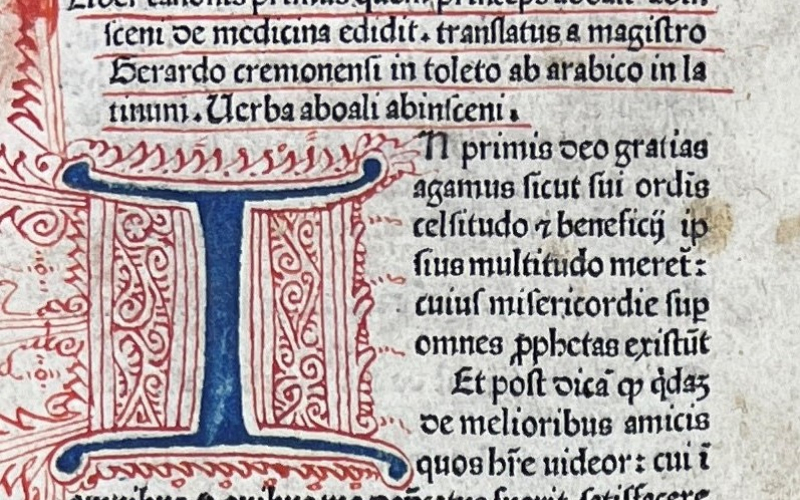 Liber canonis primus quem princeps aboali abin
sceni de medicina edidit. translatus a magistro
Gerardo cremonensi in toleto ab arabico in la
tinum. Uerba aboali abinsceni.
IN primis deo gratias
agamus sicut sui ordīs
celsitudo ⁊ beneficij ip
sius multitudo meret᷑:
cuius misericordie sup
omnes ꝓphetas existūt
Et post dicā ꝙ q̇daꝫ
de melioribus amicis
quos hr̄e uideor: cui ī